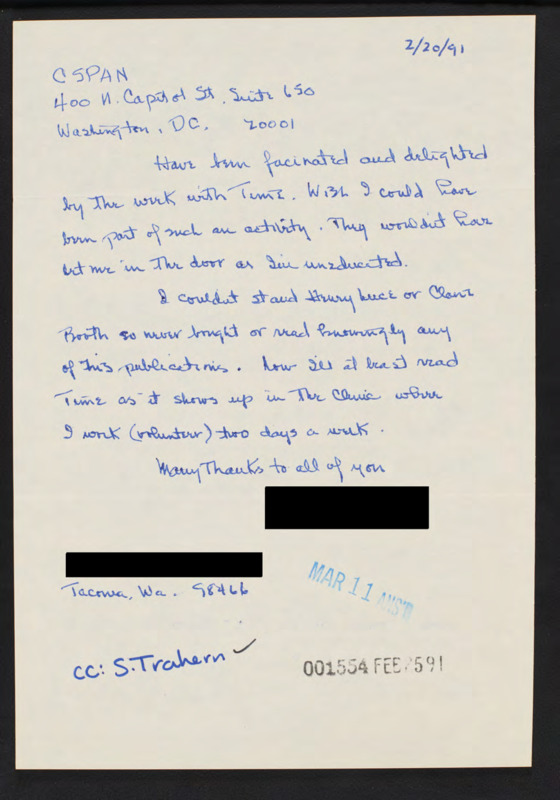 2/20/91
CSPAN
400 N. Capitol St, Suite 650
Washington, DC. 20001
Have been facinated and delighted
by the work with Time. Wish I could have
been part of such an activity. They wouldn't have
let me in the door as I'm uneducated.
I couldn't stand Henry Luce or Clare
Booth so never bought or read knowingly any
of his publications. Now I'll at least read
Time as it shows up in the Clinic where
I work (volunteer) two days a week.
Many Thanks to all of you
Tacoma, Wa. 98466
MAR 11 ANS'D
cc: S. Trahern ✓
001554 FEB 2591